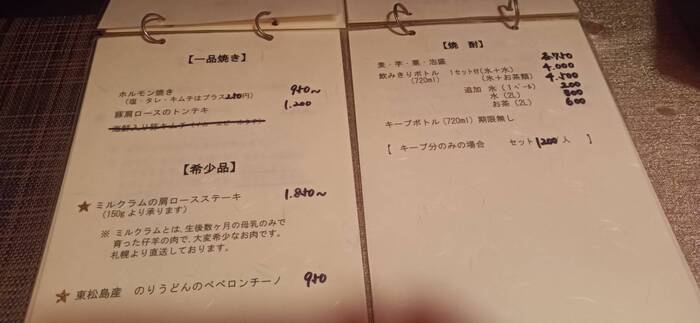 【一品焼き】
ホルモン焼き 950〜
(塩・タレ・キムチはプラス250円)
豚肩ロースのトンテキ 1.200
【希少品】
★ミルクラムの肩ロースステーキ 1.850〜
(150gより承ります)
※ ミルクラムとは、生後数ヶ月の母乳のみで
育った仔羊の肉で、大変希少なお肉です。
札幌より直送しております。
★東松島産 のりうどんのペペロンチーノ 950
【焼 酎】
麦・芋・栗・泡盛 各750
飲みきりボトル 1セット付(氷+水) 4.000
(720ml) (氷+お茶類) 4.500
追加 氷(1ペール) 200
水(2L) 500
お茶(2L) 600
キープボトル(720ml)期限無し
【 キープ分のみの場合 セット1200人 】